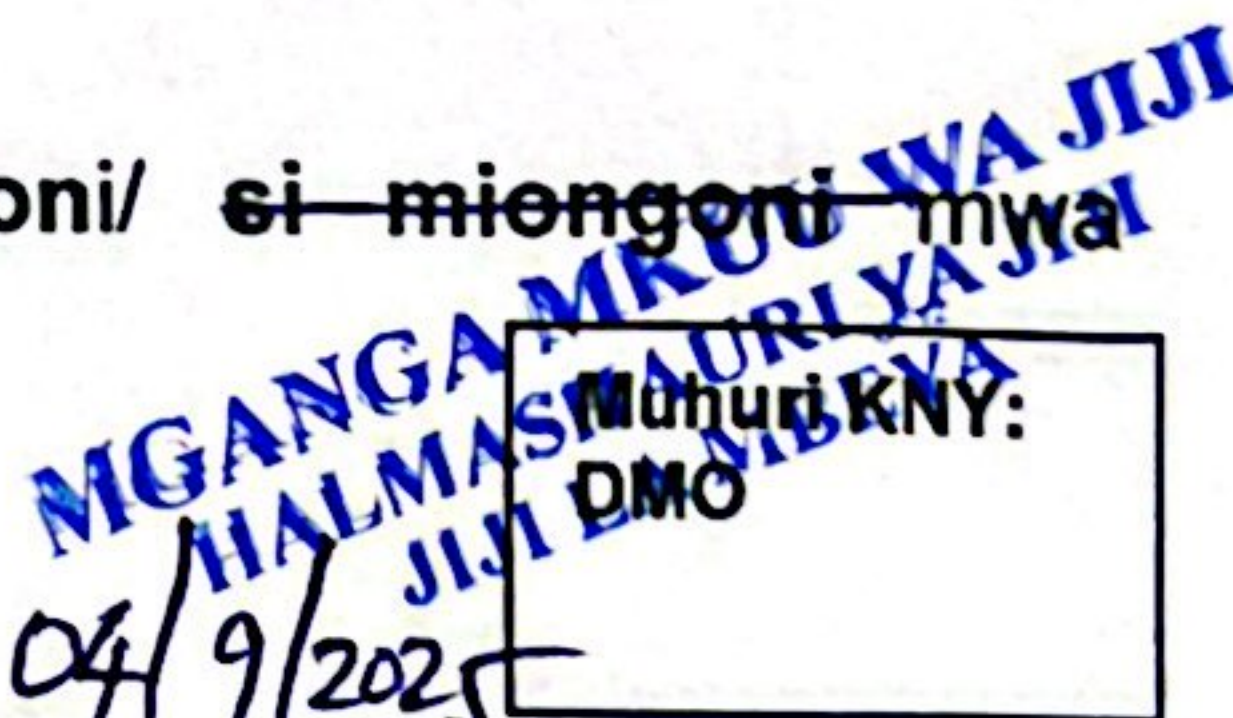 oni/ si miongoni mwa
MGANGA MKUU WA JIJI
HALMASHAURI YA JIJI
JIJI LA MBEYA
Muhuri KNY:
DMO
04/9/2025